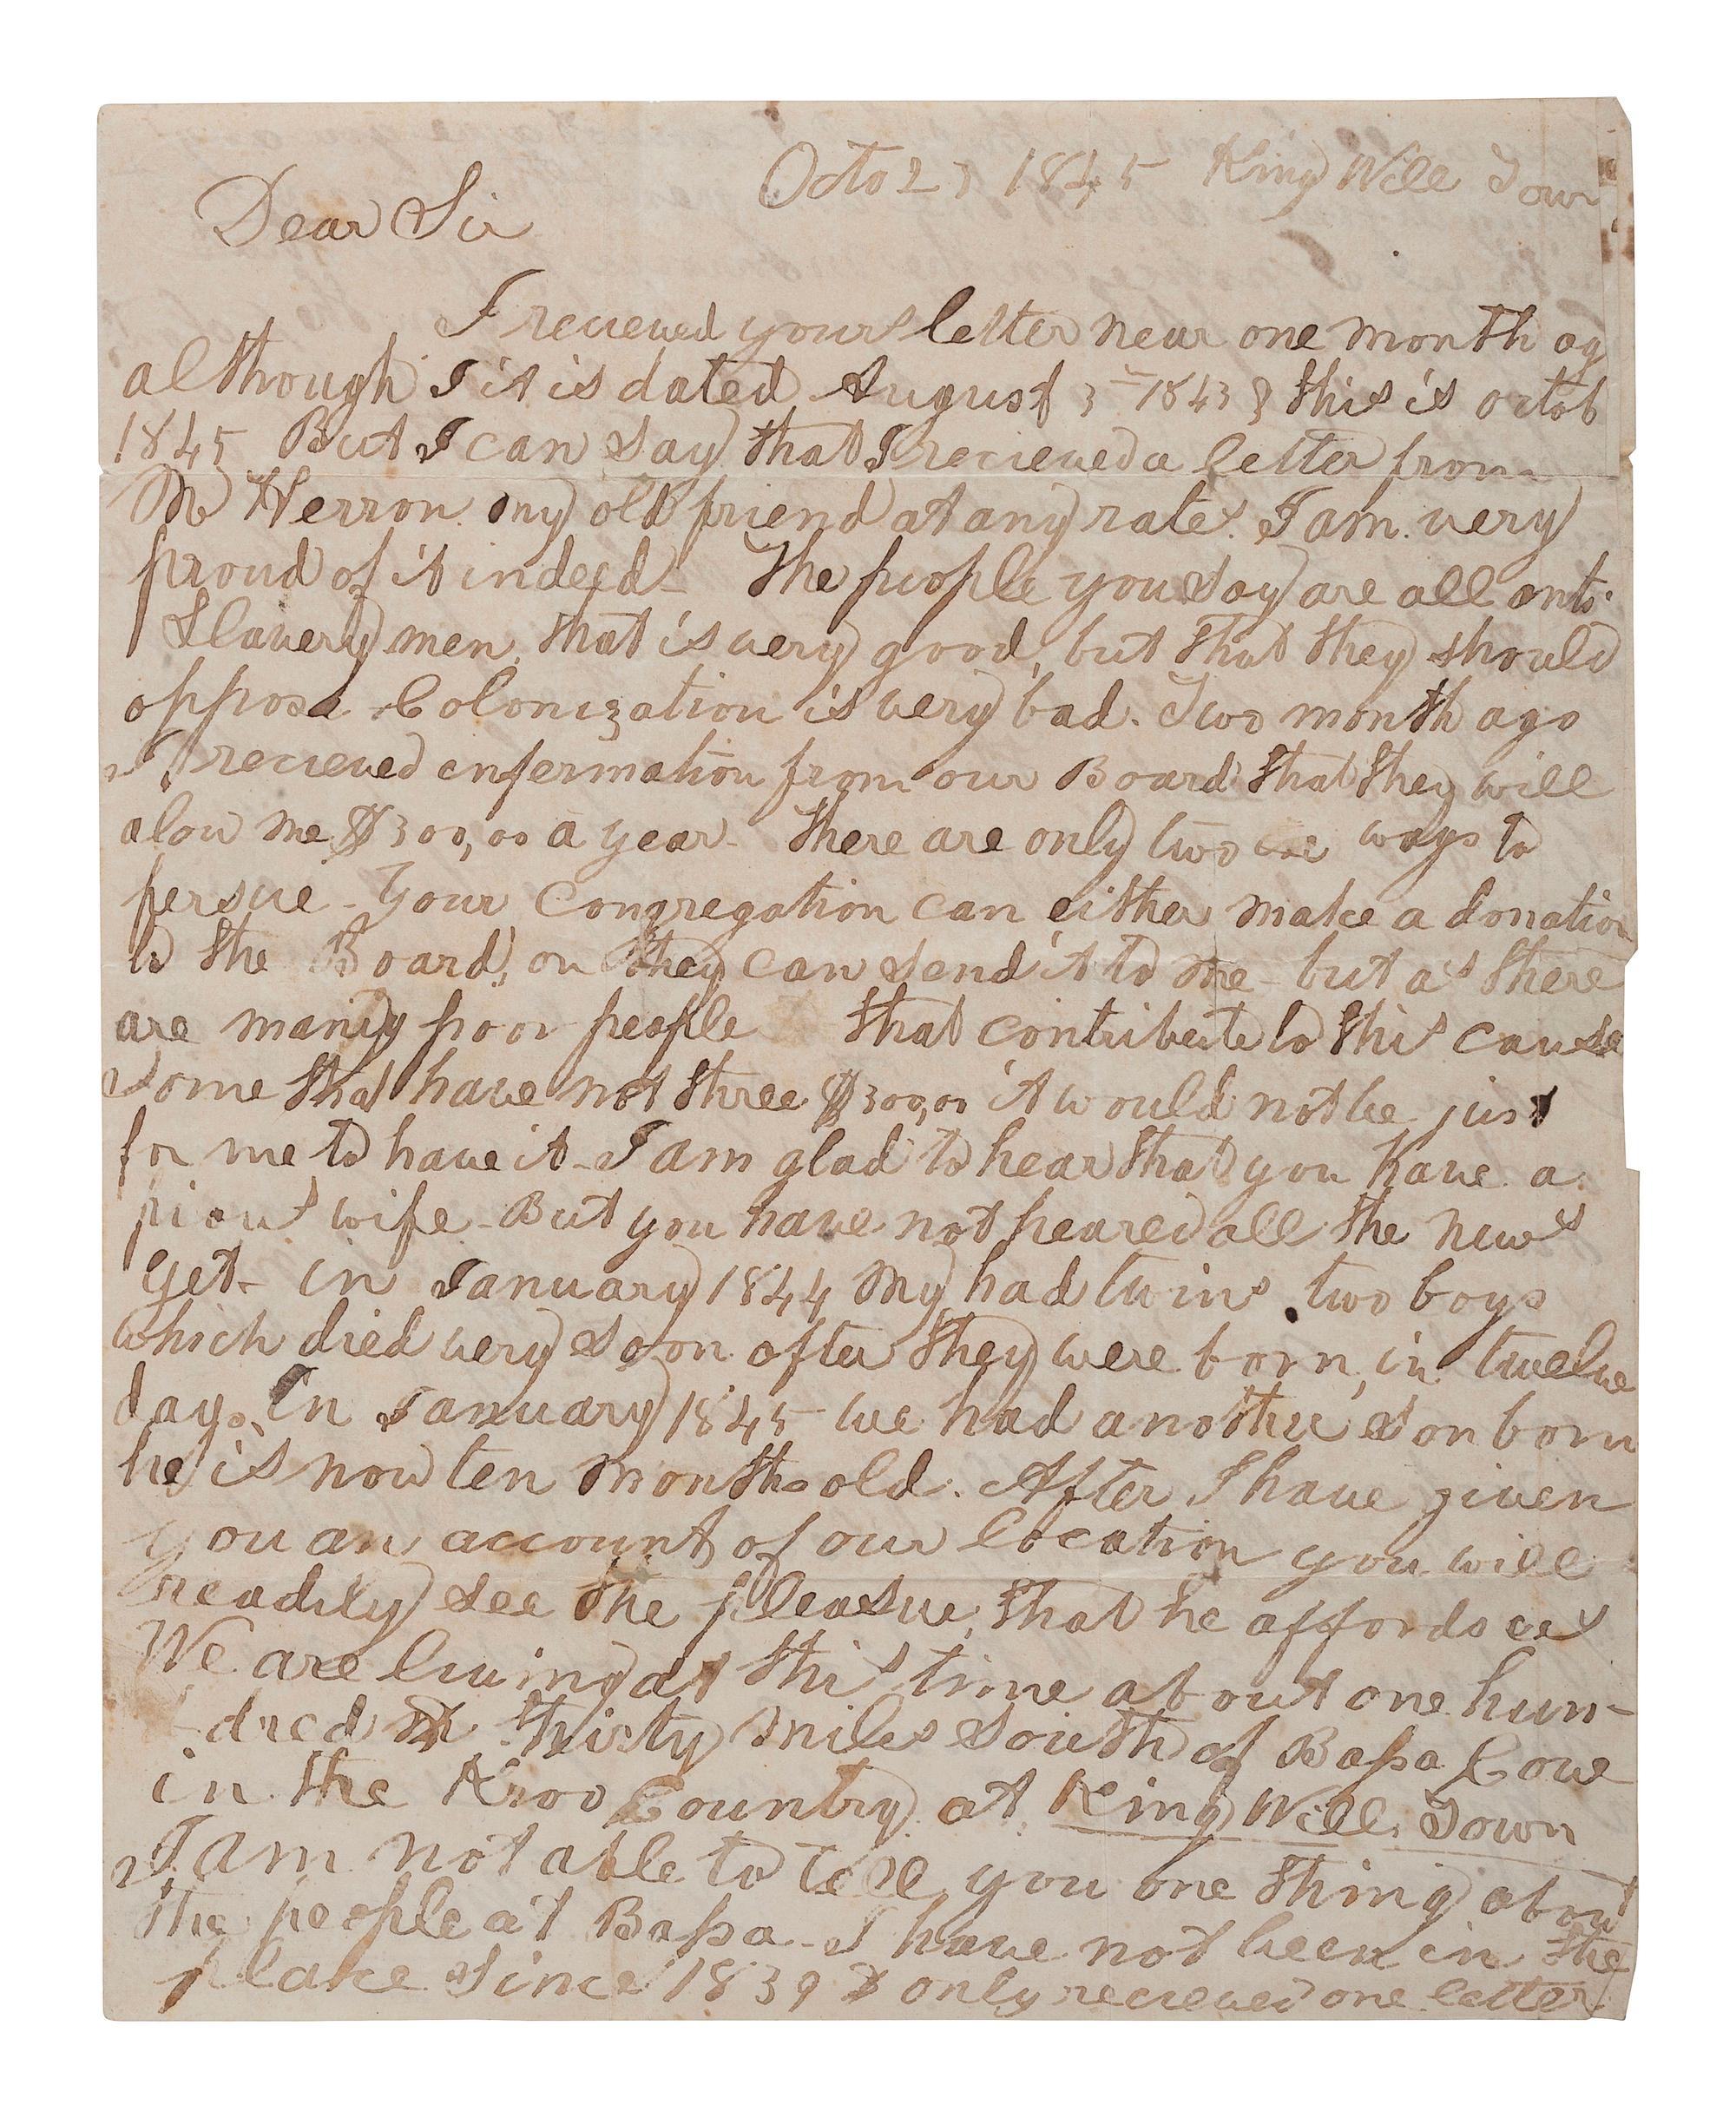 Octo 23 1845 King Will Town
Dear Sir
I recieved your letter near one month ag
although I it is dated August 3 1843 & this is octob
1845 But I can say that I recieved a letter from
Mr Herron my old friend at any rate. I am very
proud of it indeed - The people you say are all anti-
Slavery men, that is very good, but that they should
oppose Colonization is very bad. Two month ago
I recieved enfermation from our Board that they will
alow me $300,00 a year - There are only two ways to
persue - Your Congregation can either make a donation
to the Board, or they can send it to me - but as there
are many poor people that contribute to this cause
some that have not three $300,00 it would not be just
for me to have it - I am glad to hear that you have a
pious wife - But you have not heared all the news
yet - in January 1844 My had twins two boys
which died very soon after they were born, in twelve
days. In January 1845 we had another son born
he is now ten months old. After I have given
you an account of our location you will
readily see the pleasue, that he affords us
We are living at this time about one hun-
-dred thirty miles South of Bassa Cove
in the Kroo Country at King Will Town
I am not able to tell you one thing about
the people at Bassa - I have not been in the
place since 1839 & only recieved one letter